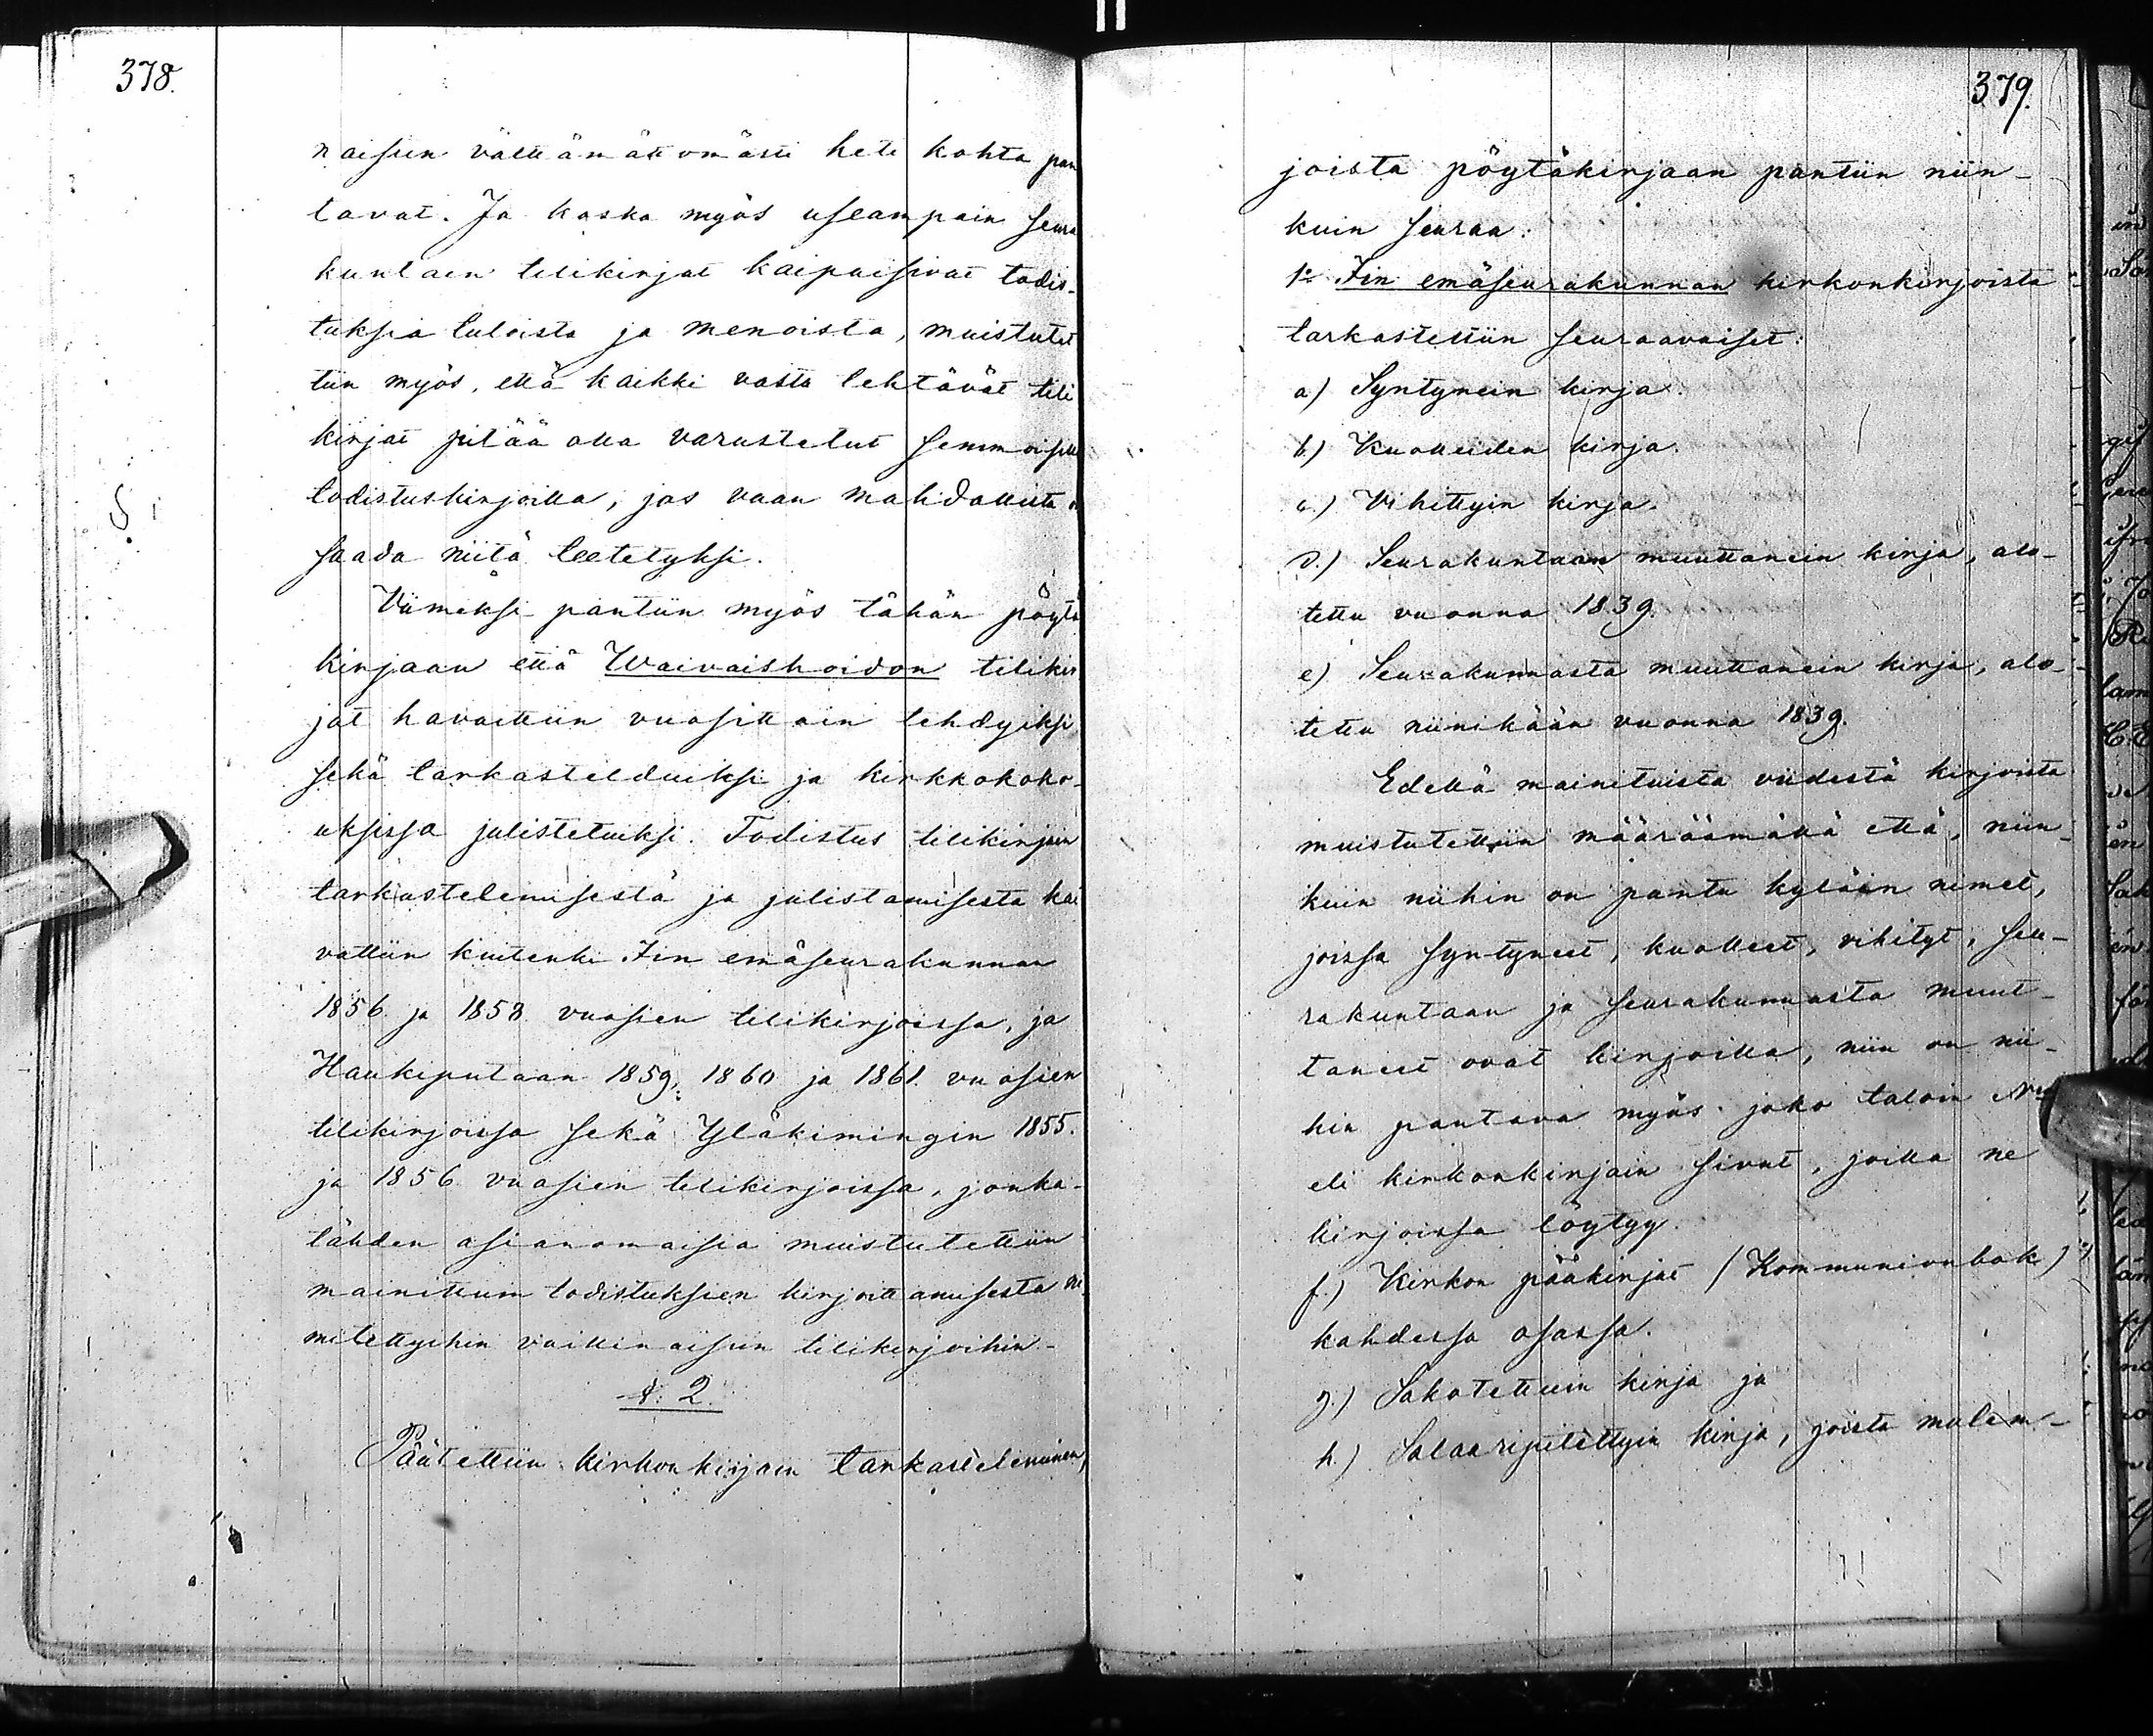 378.
naisiin välttämättömästi heti kohta pan
tavat. Ja koska myös useampain seura
kuntain tilikirjat kaipaisivat todis-
tuksia tuloista ja menoista, muistutet
tiin myös, että kaikki vasta tehtävät tili
kirjat pitää olla varustetut semmoisilla
todistuskirjoilla, jos vaan mahdollista on
saada niitä teetetyksi.
Viimeksi pantiin myös tähän pöytä
kirjaan että Waivaishoidon tilikir
jat havaittiin vuosittain tehdyiksi
sekä tarkastelduiksi ja kirkkokoko-
uksissa julistetuiksi. Todistus tilikirjain
tarkastelemisesta ja julistamisesta kai
vattiin kuitenki Iin emäseurakunnan
1856 ja 1858 vuosien tilikirjoissa, ja
Haukiputaan 1859, 1860 ja 1861 vuosien
tilikirjoissa sekä Yläkimingin 1855.
ja 1856 vuosien tilikirjoissa, jonka-
tähden asianomaisia muistutettiin
mainittuin todistuksien kirjoittamisesta ni
mitettyihin vaillinaisiin tilikirjoihin.
§. 2.
Päätettiin kirkonkirjain tarkasteleminen,
379.
joista pöytäkirjaan pantiin niin-
kuin seuraa:
1:o Iin emäseurakunnan kirkonkirjoista
tarkastettiin seuraavaiset:
a) Syntynein kirja.
b.) Kuolleiden kirja.
c.) Vihittyin kirja.
d.) Seurakuntaan muuttanein kirja, alo-
tettu vuonna 1839.
e) Seurakunnasta muuttanein kirja, alo-
tettu niinikään vuonna 1839.
Edellä mainituista viidestä kirjoista
muistutettiin määräämällä että, niin-
kuin niihin on pantu kyläin nimet,
joissa syntyneet, kuolleet, vihityt, seu-
rakuntaan ja seurakunnasta muut-
taneet ovat kirjoilla, niin on nii-
hin pantava myös joko taloin N:ro
eli kirkonkirjain sivut, joilla ne
kirjoissa löytyy.
f.) Kirkon pääkirjat (Kommunionbok)
kahdessa osassa.
g.) Sakotettuin kirja ja
h.) Salaaripitettyin kirja, joista molem-